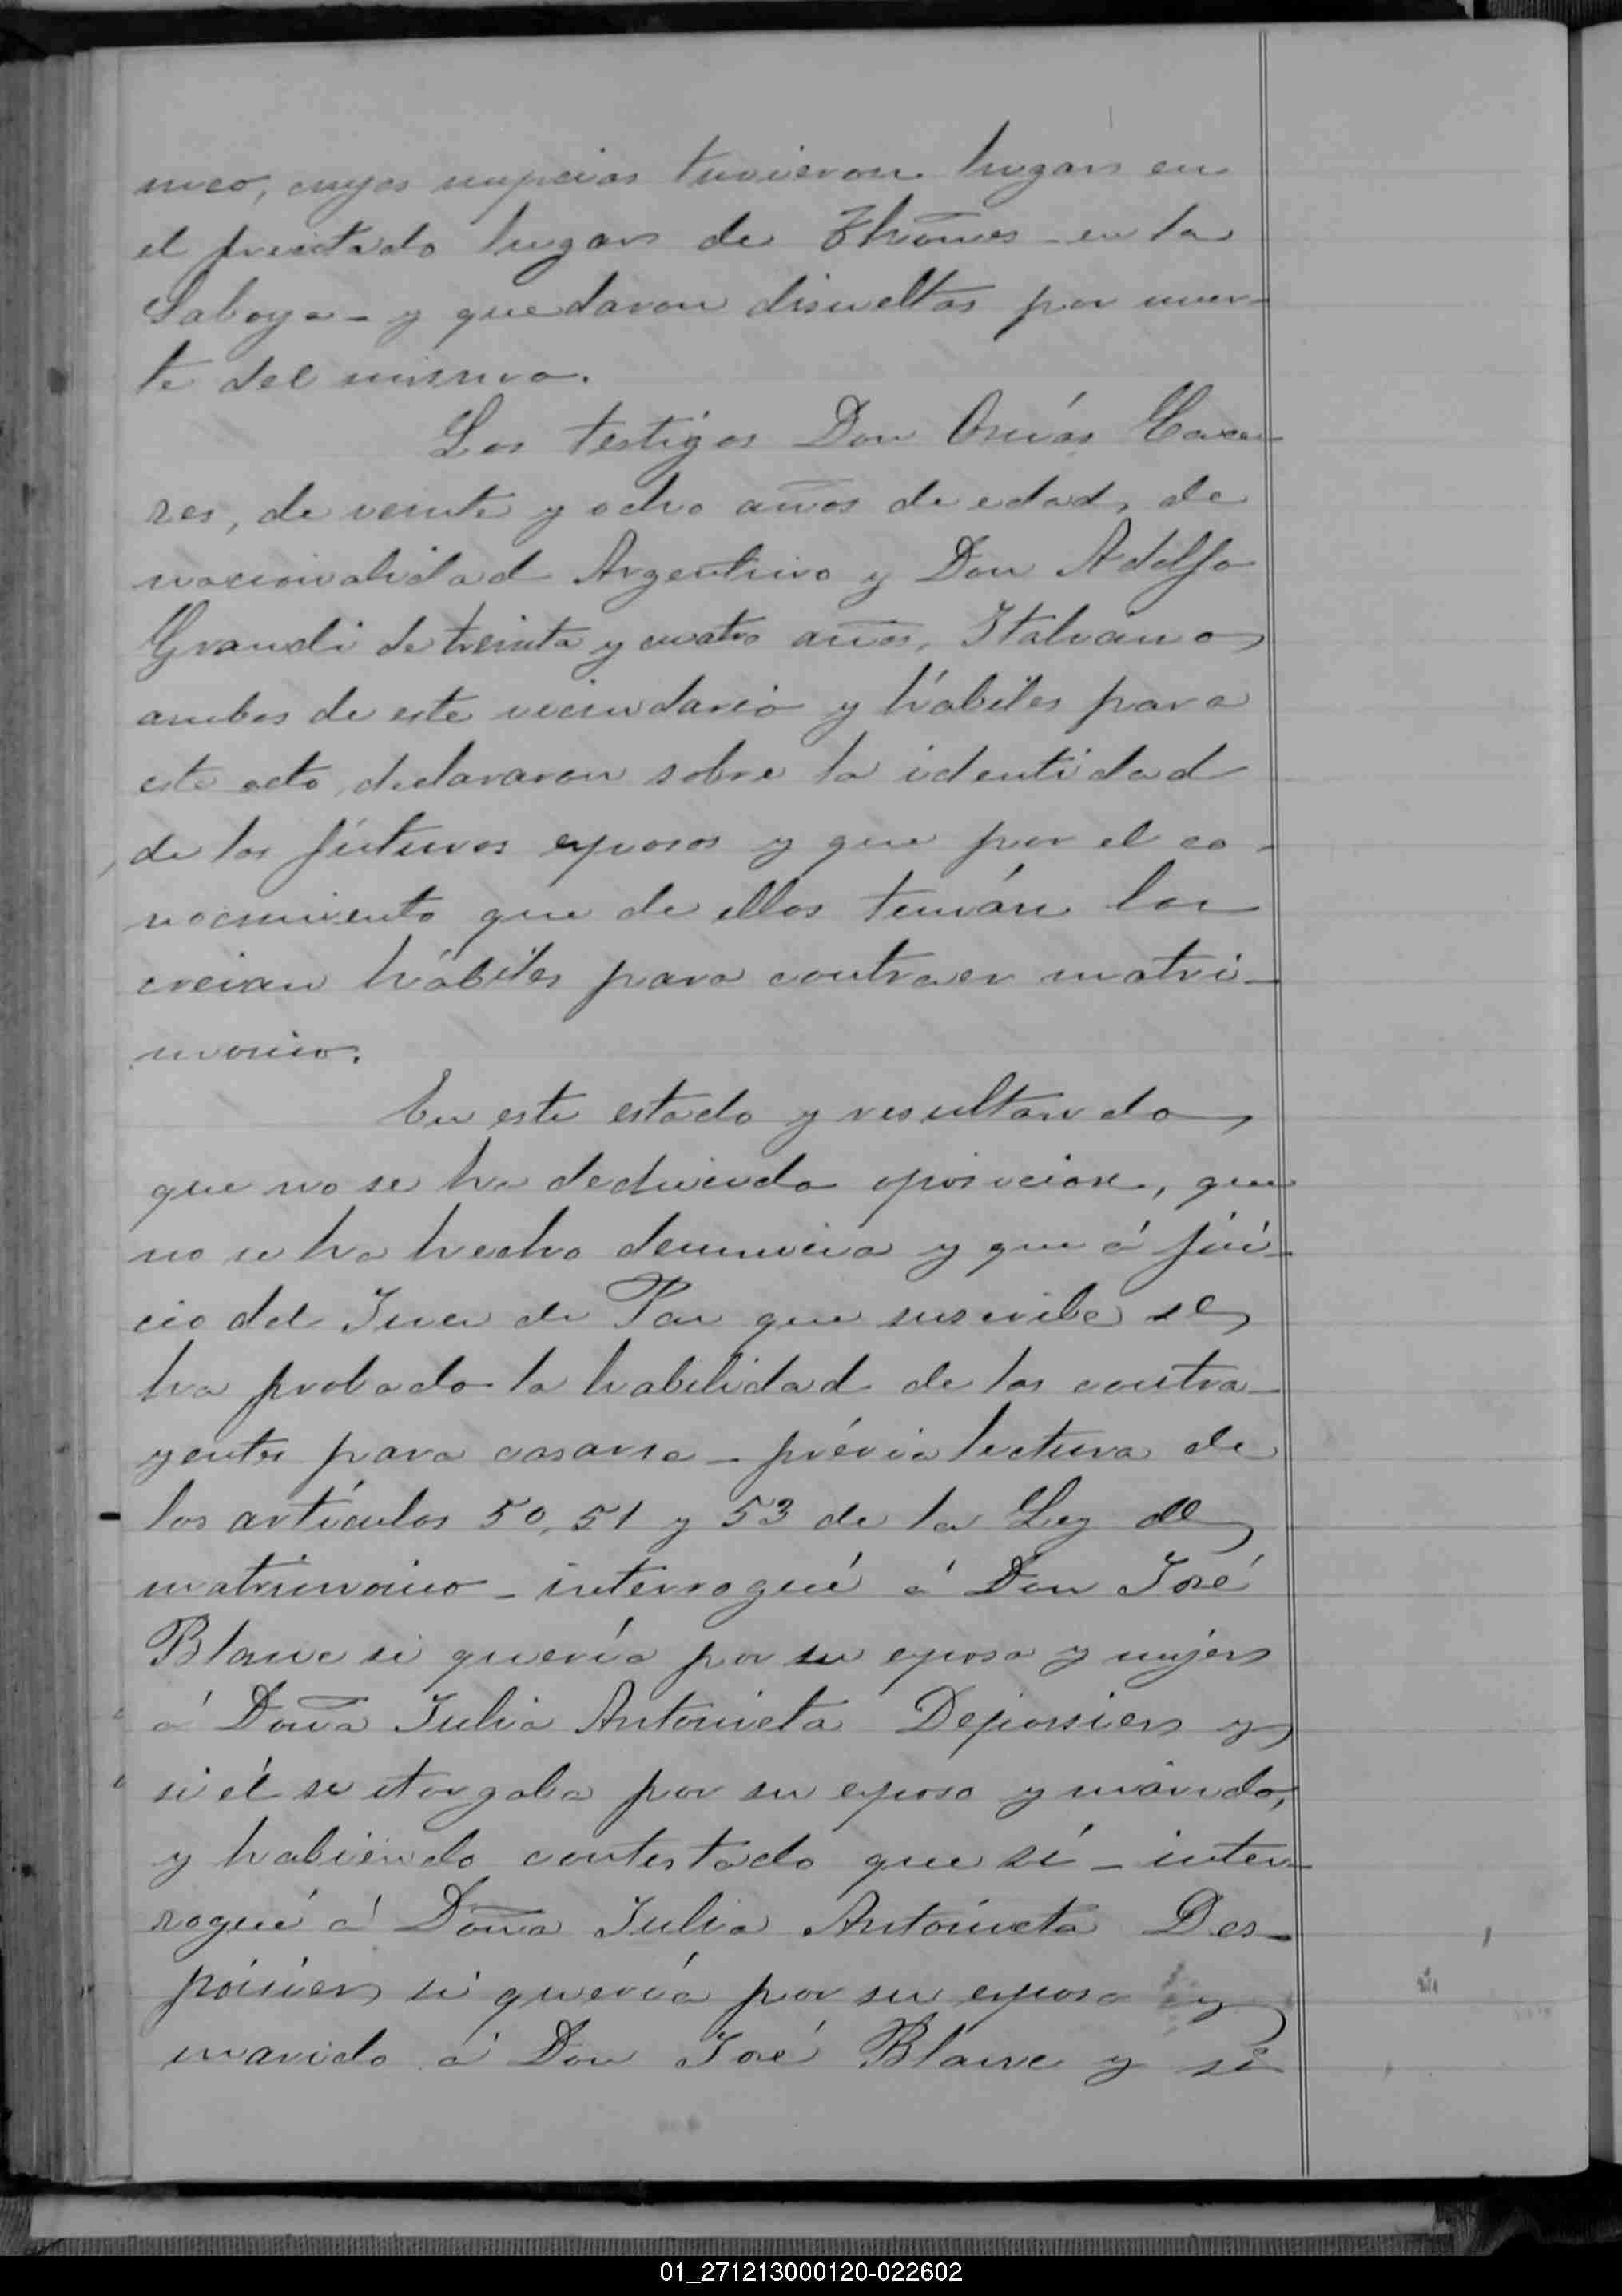 nico, cuyas nupcias tuvieron lugar en
el precitado lugar de Thônes en la
Saboya - y quedaron disueltas por muer-
te del mismo.
Los testigos Don Osías Cace-
res, de veinte y ocho años de edad, de
nacionalidad Argentino y Don Adolfo
Grandi de treinta y cuatro años, Italiano,
ambos de este vecindario y hábiles para
este acto, declararon sobre la identidad
de los fúturos esposos y que por el co-
nocimiento que de ellos tenían los
creian hábiles para contraer matri-
monio.
En este estado y resultando
que no se ha deduciendo oposicion, que
no se ha hecho denuncia y que á júi-
cio del Juez de Paz que suscribe se
ha probado la habilidad de los contra-
yentes para casarse - prévia lectura de
los artículos 50, 51 y 53 de la Ley de
matrimonio - interrogué á Don José
Blanc si quería por su esposa y mujer
á Doña Julia Antonieta Depoisier y
si él se otorgaba por su esposo y marido,
y habiendo contestado que sí - inter-
rogué á Doña Julia Antonieta Des-
poisier si quería por su esposo y
marido á Don José Blanc y si
01_271213000120-022602